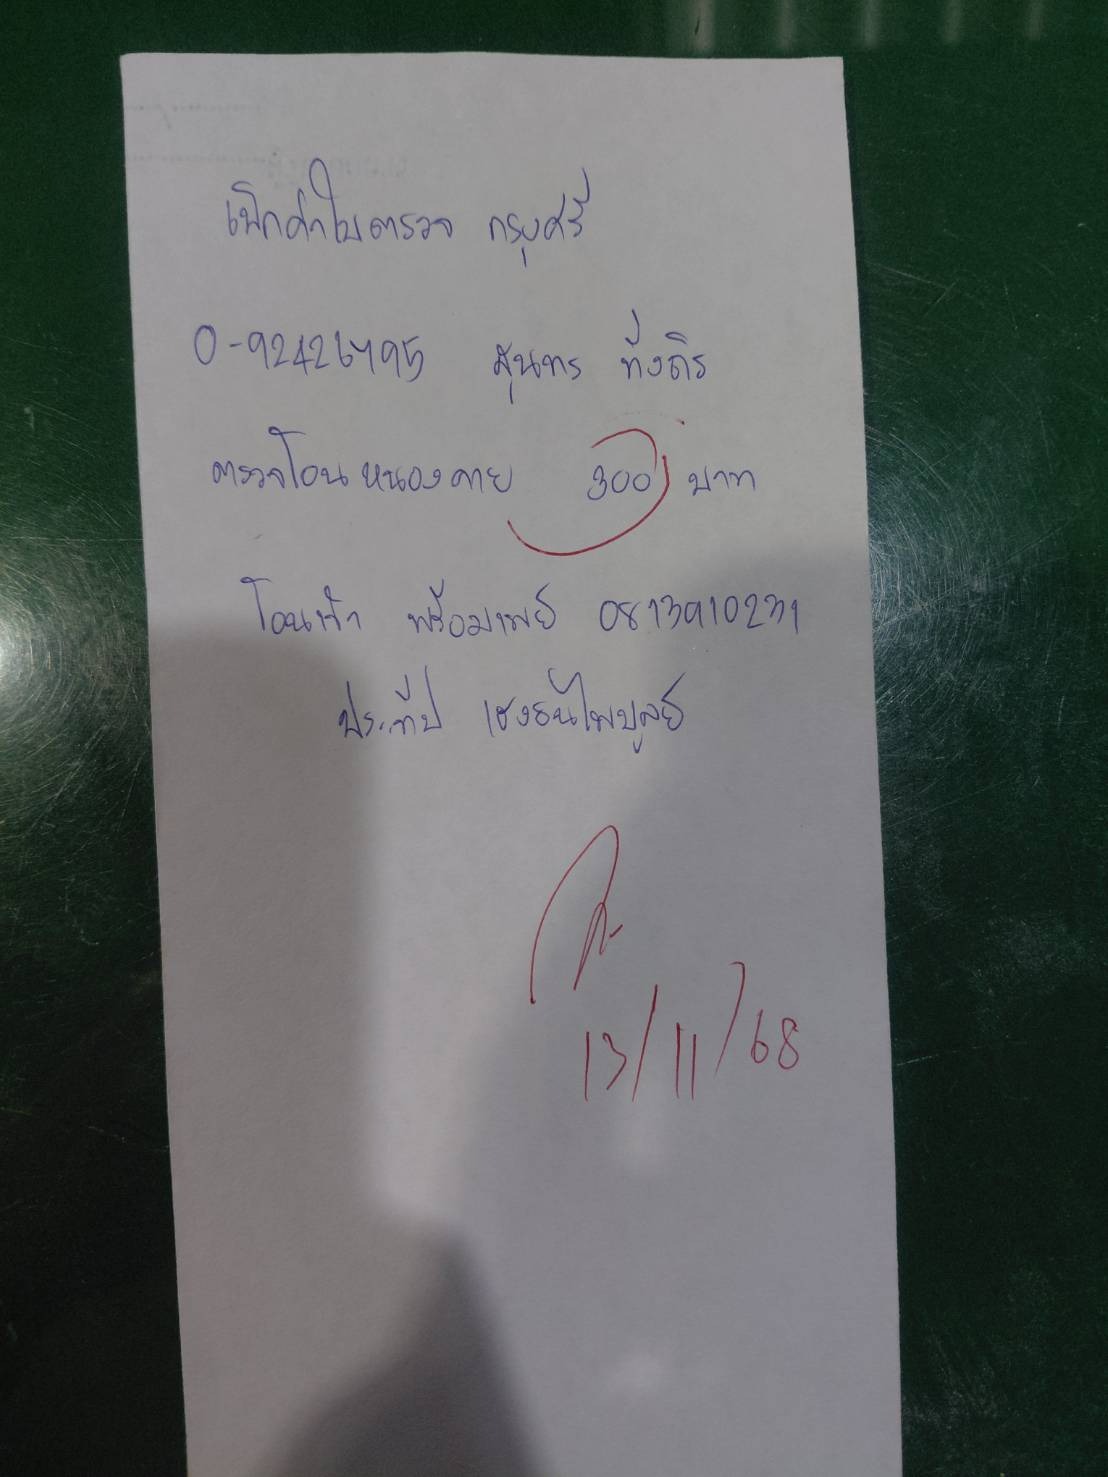 เบิกค่าใบตรวจ กรุงศรี
0-92426795 สุนทร ทั่งถิร
ตรวจโอน หนองคาย 300 บาท
โอนเข้า พร้อมเพย์ 0813910231
ประทีป เฮงธนไพบูลย์
13/11/68